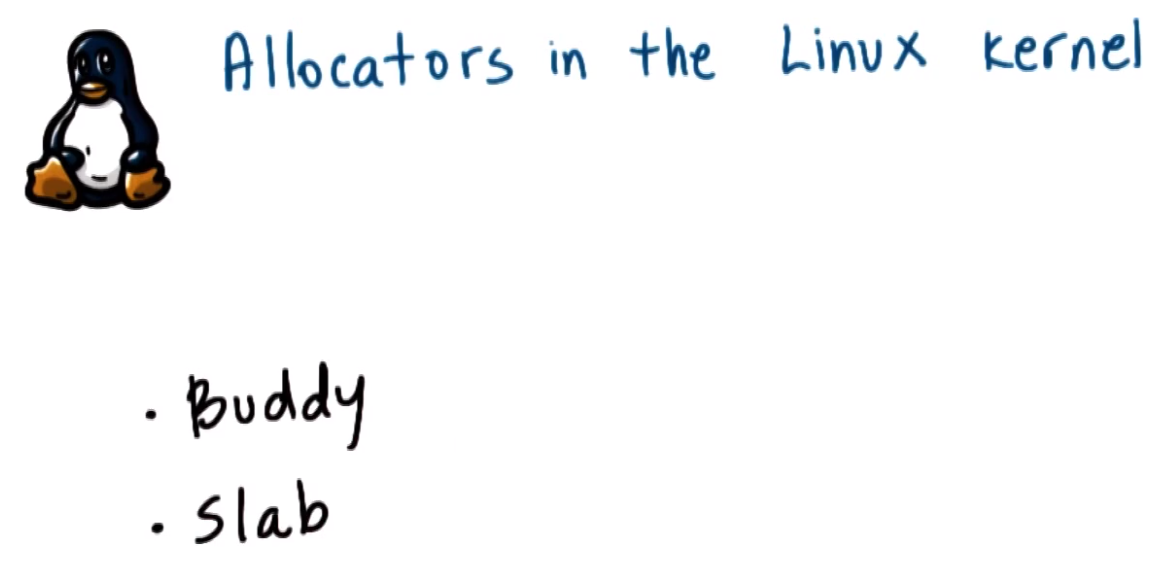 Allocators in the Linux kernel
. Buddy
. Slab